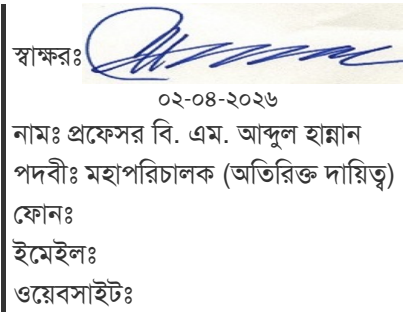 স্বাক্ষরঃ
০২-০৪-২০২৬
নামঃ প্রফেসর বি. এম. আব্দুল হান্নান
পদবীঃ মহাপরিচালক (অতিরিক্ত দায়িত্ব)
ফোনঃ
ইমেইলঃ
ওয়েবসাইটঃ